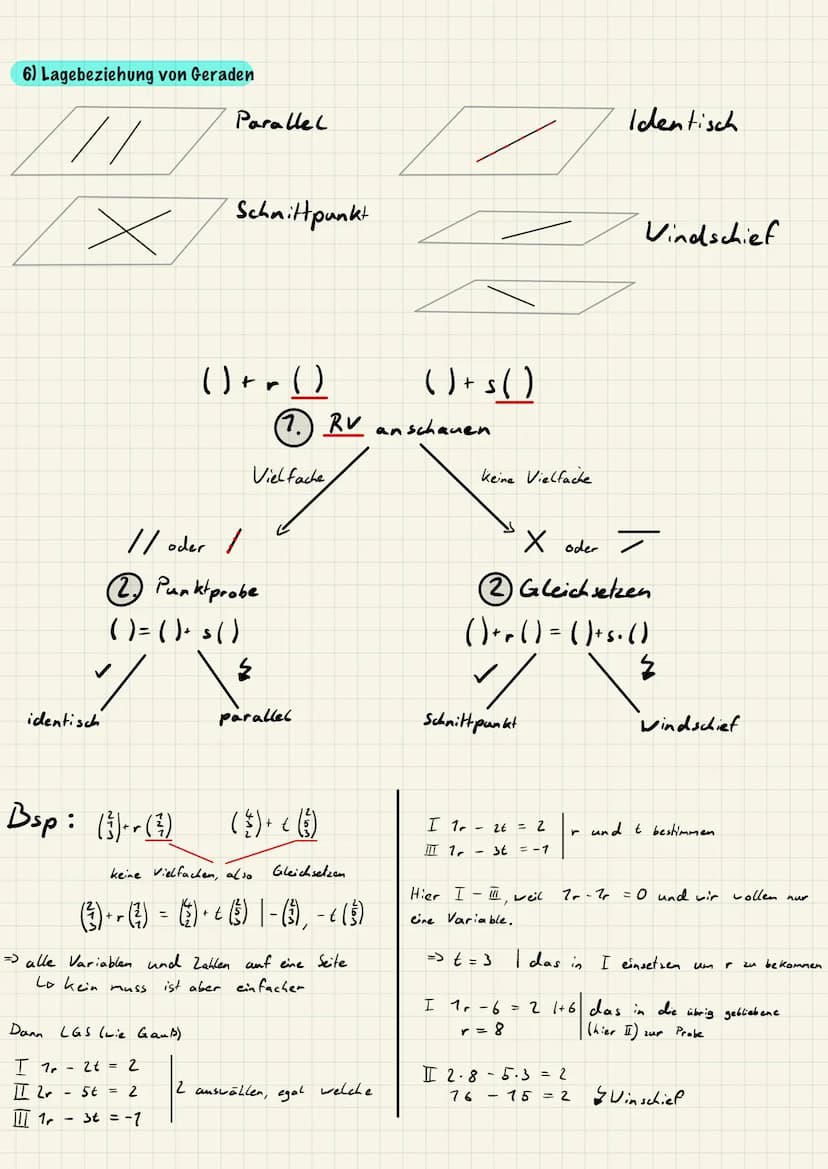 6) Lagebeziehung von Geraden
Parallel
Identisch
Schnittpunkt
Vindschief
( ) + r ( )
( ) + s ( )
1. RV anschauen
Vielfache
keine Vielfache
// oder /
X oder
2. Punktprobe
2 Gleichsetzen
( ) = ( ) + s ( )
( ) + r ( ) = ( ) + s · ( )
✓ ↯
✓ ↯
identisch
parallel
Schnittpunkt
Vindschief
Bsp: (2 1 3) + r (1 2 1) (4 3 2) + t (2 5 3)
keine Vielfachen, also Gleichsetzen
(2 1 3) + r (1 2 1) = (4 3 2) + t (2 5 3) | - (2 1 3), - t (2 5 3)
=> alle Variablen und Zahlen auf eine Seite
↳ kein muss ist aber einfacher
Dann LGS (wie Gauß)
I 1r - 2t = 2
II 2r - 5t = 2
III 1r - 3t = -1
2 auswählen, egal welche
I 1r - 2t = 2
III 1r - 3t = -1
r und t bestimmen
Hier I - III, weil 1r - 1r = 0 und wir wollen nur
eine Variable.
=> t = 3 | das in I einsetzen um r zu bekommen
I 1r - 6 = 2 |+6 | das in die übrig gebliebene
r = 8 (hier II) zur Probe
II 2·8 - 5·3 = 2
16 - 15 = 2 ↯ Vinschief